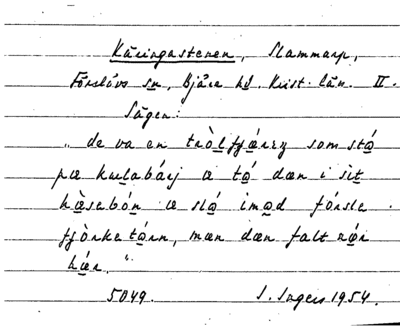 Käringastenen, Slammarp,
Förslövs sn, Bjäre hd. Krist. län. II.
Sägen:
"de va en tròlfjǽrıŋ som stá̱
pæ kulabárj æ tá̱ dæn i sit
hǻsebón æ slá̱ imod fórslө
fjörketá̱rn, mæn dæn falt nǽr
hǽr."
5049. I. Ingers 1954.